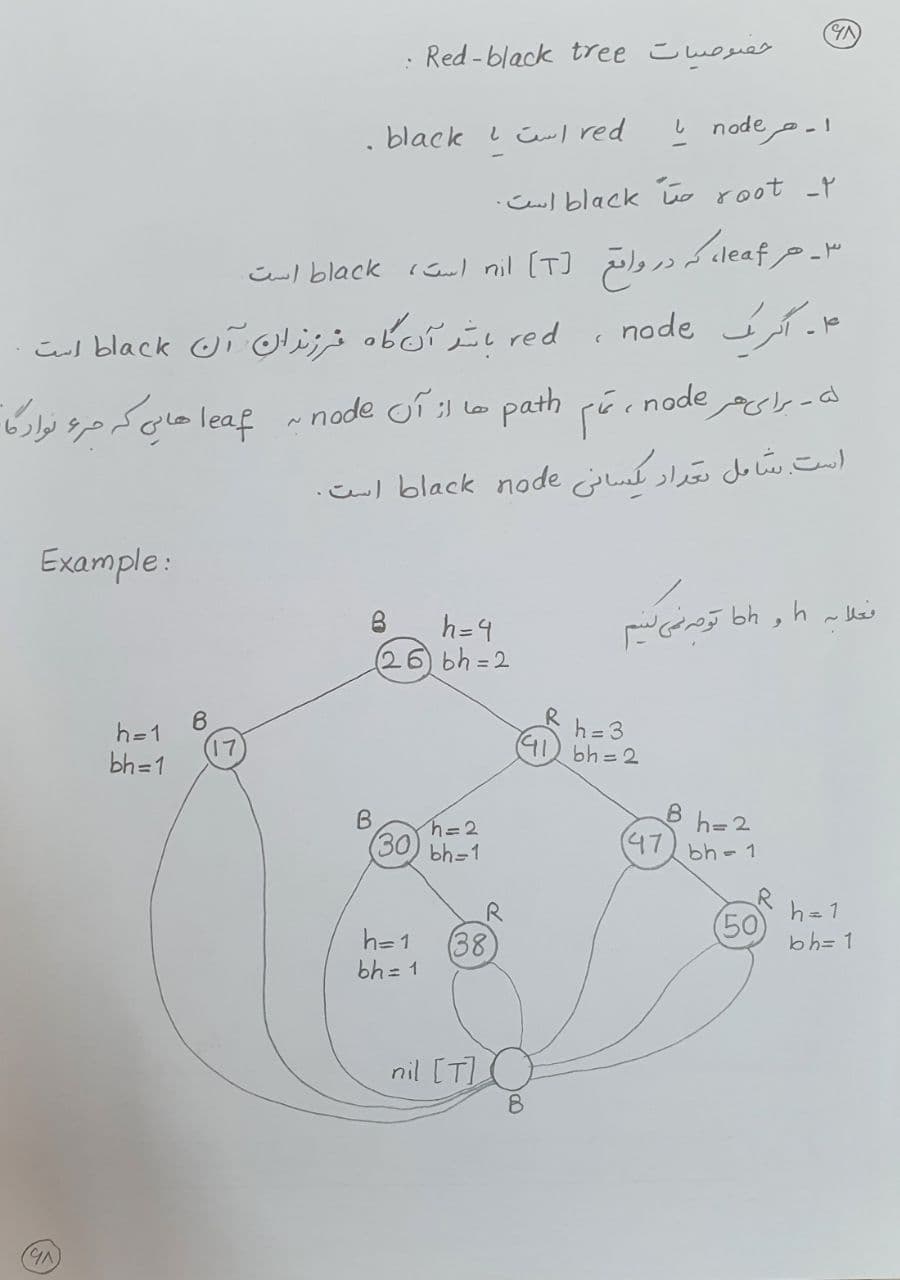 ۶۸
خصوصیات Red-black tree :
۱- هر node یا red است یا black .
۲- root حتماً black است.
۳- هر leaf، که در واقع nil [T] است، black است
۴- اگر یک node ، red باشد آن گاه فرزندان آن black است .
۵- برای هر node ، تمام path ها از آن node به leaf هایی که جزء
است. شامل تعداد یکسانی black node است.
Example:
فعلا به h و bh توجه نمی کنیم
B h=4
26 bh=2
h=1 B
bh=1 17
R h=3
41 bh=2
B h=2
30 bh=1
B h=2
47 bh=1
h=1 R
bh=1 38
R h=1
50 bh=1
nil [T]
B
۶۸